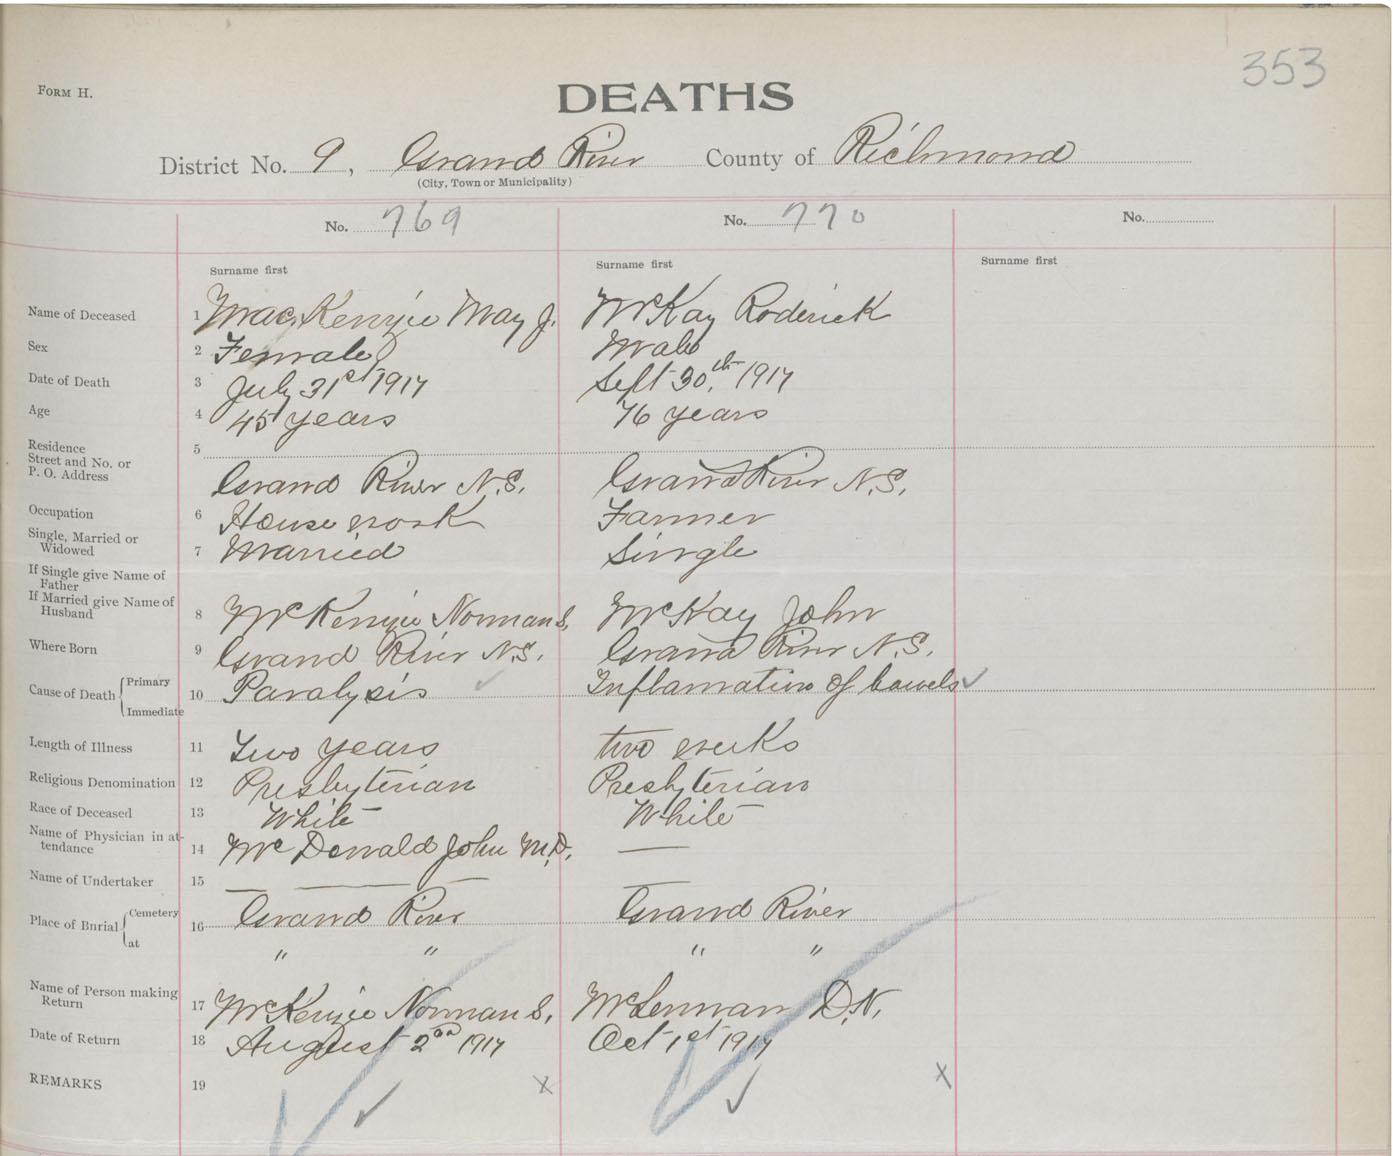 353
FORM H.
DEATHS
District No. 9, Grand River County of Richmond
(City, Town or Municipality)
No. 769 No. 770 No.
Surname first Surname first Surname first
Name of Deceased 1 MacKenzie May J. McKay Roderick
Sex 2 Female Male
Date of Death 3 July 31st 1917 Sept 30th 1917
Age 4 45 years 76 years
Residence 5
Street and No. or
P. O. Address Grand River N.S. Grand River N.S.
Occupation 6 House work Farmer
Single, Married or
Widowed 7 Married Single
If Single give Name of
Father
If Married give Name of
Husband 8 McKenzie Norman S. McKay John
Where Born 9 Grand River N.S. Grand River N.S.
Cause of Death Primary
Immediate 10 Paralysis Inflamation of bowels
Length of Illness 11 Two years two weeks
Religious Denomination 12 Presbyterian Presbyterian
Race of Deceased 13 White White
Name of Physician in at-
tendance 14 McDonald John M.D. —
Name of Undertaker 15 — —
Place of Burial Cemetery 16 Grand River Grand River
at " " " "
Name of Person making
Return 17 McKenzie Norman S. McLennan D.N.
Date of Return 18 August 2nd 1917 Oct 1st 1917
REMARKS 19 x x